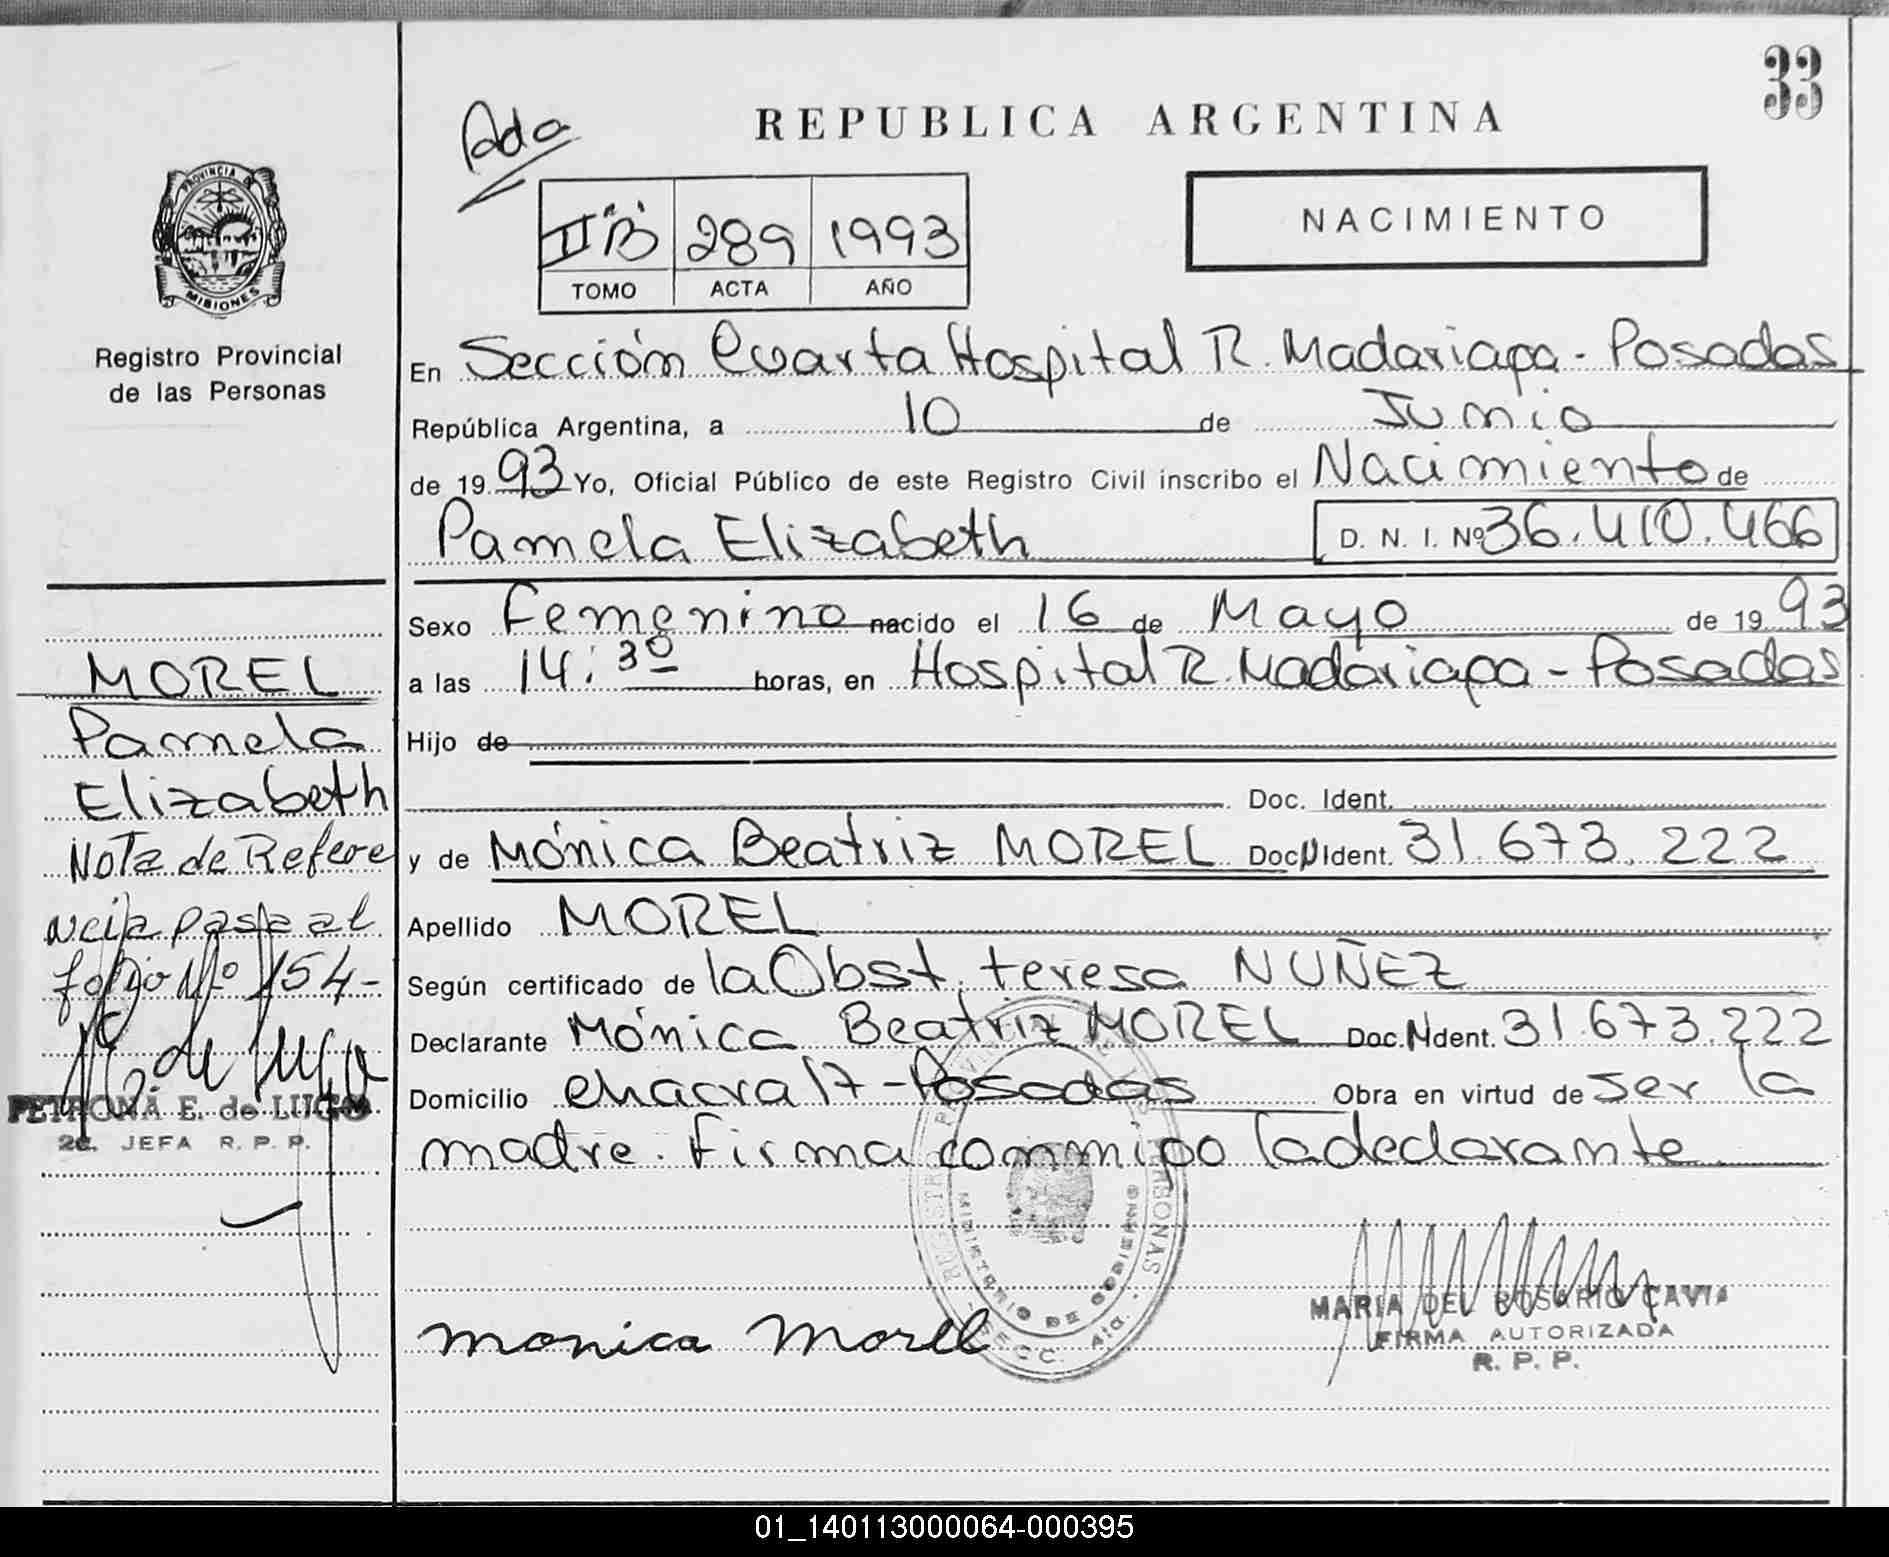 33
Ada
REPUBLICA ARGENTINA
PROVINCIA DE
MISIONES
II "B" 289 1993
TOMO ACTA AÑO
NACIMIENTO
Registro Provincial
de las Personas
En Sección Cuarta Hospital R. Madariaga - Posadas
República Argentina, a 10 de Junio
de 1993 Yo, Oficial Público de este Registro Civil inscribo el Nacimiento de
Pamela Elizabeth D. N. I. Nº 36.410.466
Sexo Femenino nacido el 16 de Mayo de 1993
a las 14:30 horas, en Hospital R. Madariaga - Posadas
Hijo de
Doc. Ident.
y de Mónica Beatriz MOREL Doc. Ident. 31.673.222
Apellido MOREL
Según certificado de la Obst. teresa NUÑEZ
Declarante Mónica Beatriz MOREL Doc. Ident. 31.673.222
Domicilio chacra 17 - Posadas Obra en virtud de ser la
madre. Firma conmigo la declarante
MOREL
Pamela
Elizabeth
Nota de Refere
ncia pasa al
folio Nº 154-
PETRONA E. de LUGO
2a. JEFA R. P. P.
MINISTERIO DE GOBIERNO
SECC. 4ta.
monica Morel
MARIA DEL ROSARIO CAVIA
FIRMA AUTORIZADA
R. P. P.
01_140113000064-000395